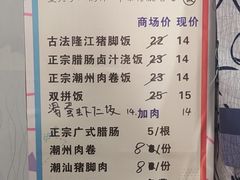 商场价 现价
古法隆江猪脚饭 22 14
正宗腊肠卤汁浇饭 23 14
正宗潮州肉卷饭 23 14
双拼饭 25 15
滑蛋虾仁饭 14
加肉 14
正宗广式腊肠 5/根
潮州肉卷 8/份
潮汕猪脚肉 8/份